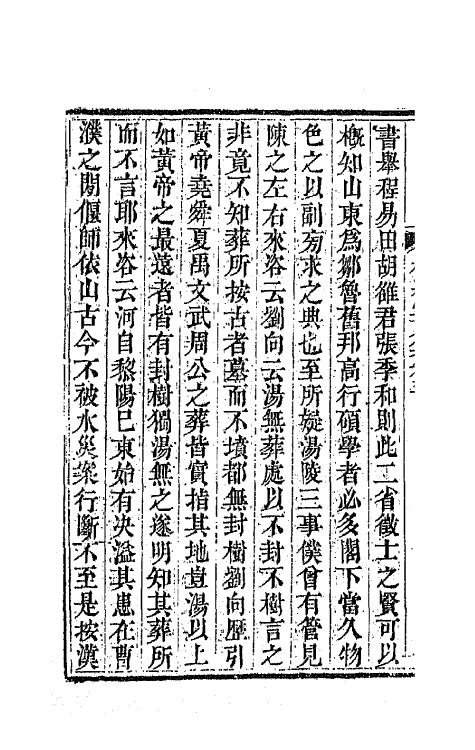 書舉程易田胡雒君張季和則此二省徵士之賢可以
概知山東爲鄒魯舊邦高行碩學者必多閣下當久物
色之以副旁求之典也至所疑湯陵三事僕曾有管見
陳之左右來咨云劉向云湯無葬處以不封不樹言之
非竟不知葬所按古者墓而不墳都無封樹劉向歷引
黃帝堯舜夏禹文武周公之葬皆實指其地豈湯以上
如黃帝之最遠者皆有封樹獨湯無之遂明知其葬所
而不言耶來咨云河自黎陽已東始有決溢其患在曹
濮之閒偃師依山古今不被水災案行斷不至是按漢